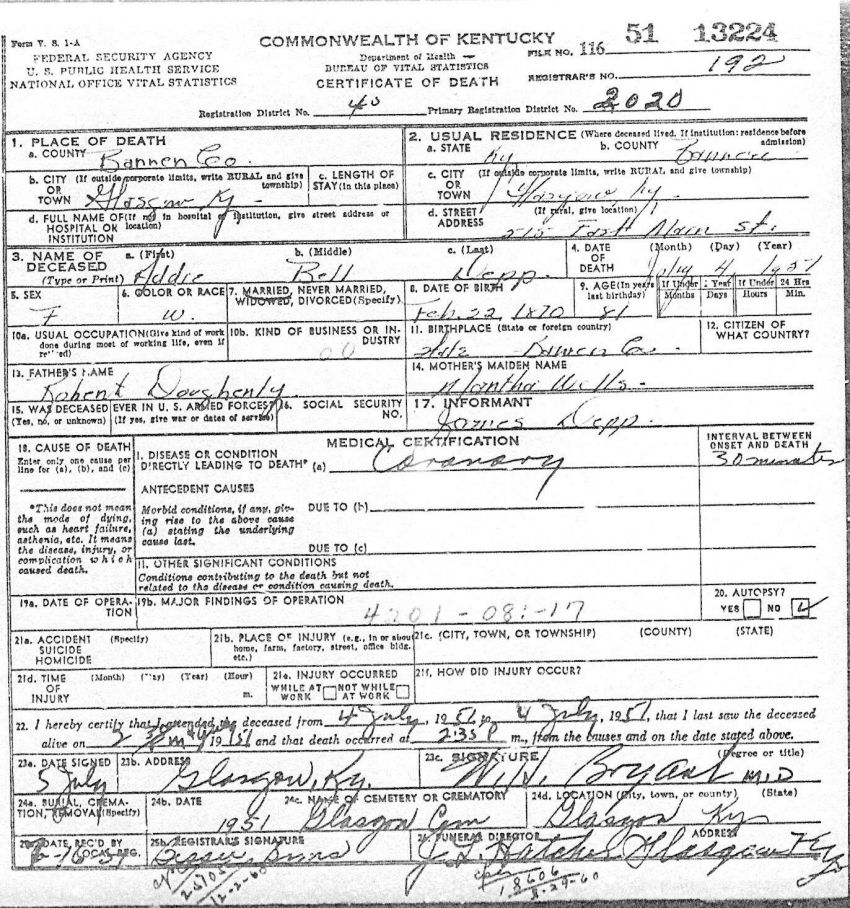 Form V. S. 1-A
COMMONWEALTH OF KENTUCKY
FILE NO. 116 51 13224
FEDERAL SECURITY AGENCY
U. S. PUBLIC HEALTH SERVICE
NATIONAL OFFICE VITAL STATISTICS
Department of Health —
BUREAU OF VITAL STATISTICS
CERTIFICATE OF DEATH
REGISTRAR'S NO. 192
Registration District No. 40 Primary Registration District No. 2020
1. PLACE OF DEATH
a. COUNTY Barren Co.
2. USUAL RESIDENCE (Where deceased lived. If institution: residence before admission)
a. STATE Ky b. COUNTY Barren
b. CITY (If outside corporate limits, write RURAL and give township)
OR TOWN Glasgow Ky
c. LENGTH OF STAY (in this place)
c. CITY (If outside corporate limits, write RURAL and give township)
OR TOWN Glasgow Ky.
d. FULL NAME OF (If not in hospital or institution, give street address or location)
HOSPITAL OR INSTITUTION
d. STREET ADDRESS (If rural, give location)
East Main St.
3. NAME OF DECEASED (Type or Print)
a. (First) Addie b. (Middle) Bell c. (Last) Depp
4. DATE OF DEATH (Month) (Day) (Year)
July 4, 1951
5. SEX F
6. COLOR OR RACE W.
7. MARRIED, NEVER MARRIED, WIDOWED, DIVORCED (Specify)
8. DATE OF BIRTH Feb. 22, 1870
9. AGE (In years last birthday) 81
If Under 1 Year Months Days
If Under 24 Hrs Hours Min.
10a. USUAL OCCUPATION (Give kind of work done during most of working life, even if retired)
10b. KIND OF BUSINESS OR INDUSTRY
11. BIRTHPLACE (State or foreign country)
Barren Co.
12. CITIZEN OF WHAT COUNTRY?
13. FATHER'S NAME
Robert Dougherty
14. MOTHER'S MAIDEN NAME
Martha Wells
15. WAS DECEASED EVER IN U. S. ARMED FORCES?
(Yes, no, or unknown) (If yes, give war or dates of service)
16. SOCIAL SECURITY NO.
17. INFORMANT
James Depp.
18. CAUSE OF DEATH
Enter only one cause per line for (a), (b), and (c)
MEDICAL CERTIFICATION
INTERVAL BETWEEN ONSET AND DEATH
I. DISEASE OR CONDITION DIRECTLY LEADING TO DEATH* (a) Coronary
30 minutes
ANTECEDENT CAUSES
*This does not mean the mode of dying, such as heart failure, asthenia, etc. It means the disease, injury, or complication which caused death.
Morbid conditions, if any, giving rise to the above cause (a) stating the underlying cause last.
DUE TO (b)
DUE TO (c)
II. OTHER SIGNIFICANT CONDITIONS
Conditions contributing to the death but not related to the disease or condition causing death.
19a. DATE OF OPERATION
19b. MAJOR FINDINGS OF OPERATION
4201-081-17
20. AUTOPSY?
YES NO
21a. ACCIDENT SUICIDE HOMICIDE (Specify)
21b. PLACE OF INJURY (e.g., in or about home, farm, factory, street, office bldg. etc.)
21c. (CITY, TOWN, OR TOWNSHIP) (COUNTY) (STATE)
21d. TIME OF INJURY (Month) (Day) (Year) (Hour) m.
21e. INJURY OCCURRED
WHILE AT WORK NOT WHILE AT WORK
21f. HOW DID INJURY OCCUR?
22. I hereby certify that I attended the deceased from 4 July, 1951 to 4 July, 1951, that I last saw the deceased
alive on 1951 and that death occurred at 2:35 P m., from the causes and on the date stated above.
23a. DATE SIGNED
5 July
23b. ADDRESS
Glasgow, Ky.
23c. SIGNATURE (Degree or title)
W. H. Bryant M.D
24a. BURIAL, CREMATION, REMOVAL (Specify)
24b. DATE
1951
24c. NAME OF CEMETERY OR CREMATORY
Glasgow Cem
24d. LOCATION (City, town, or county) (State)
Glasgow Ky
25a. DATE REC'D BY LOCAL REG.
25b. REGISTRAR'S SIGNATURE
26. FUNERAL DIRECTOR ADDRESS
Glasgow Ky
12-2-60
18606
8-29-60